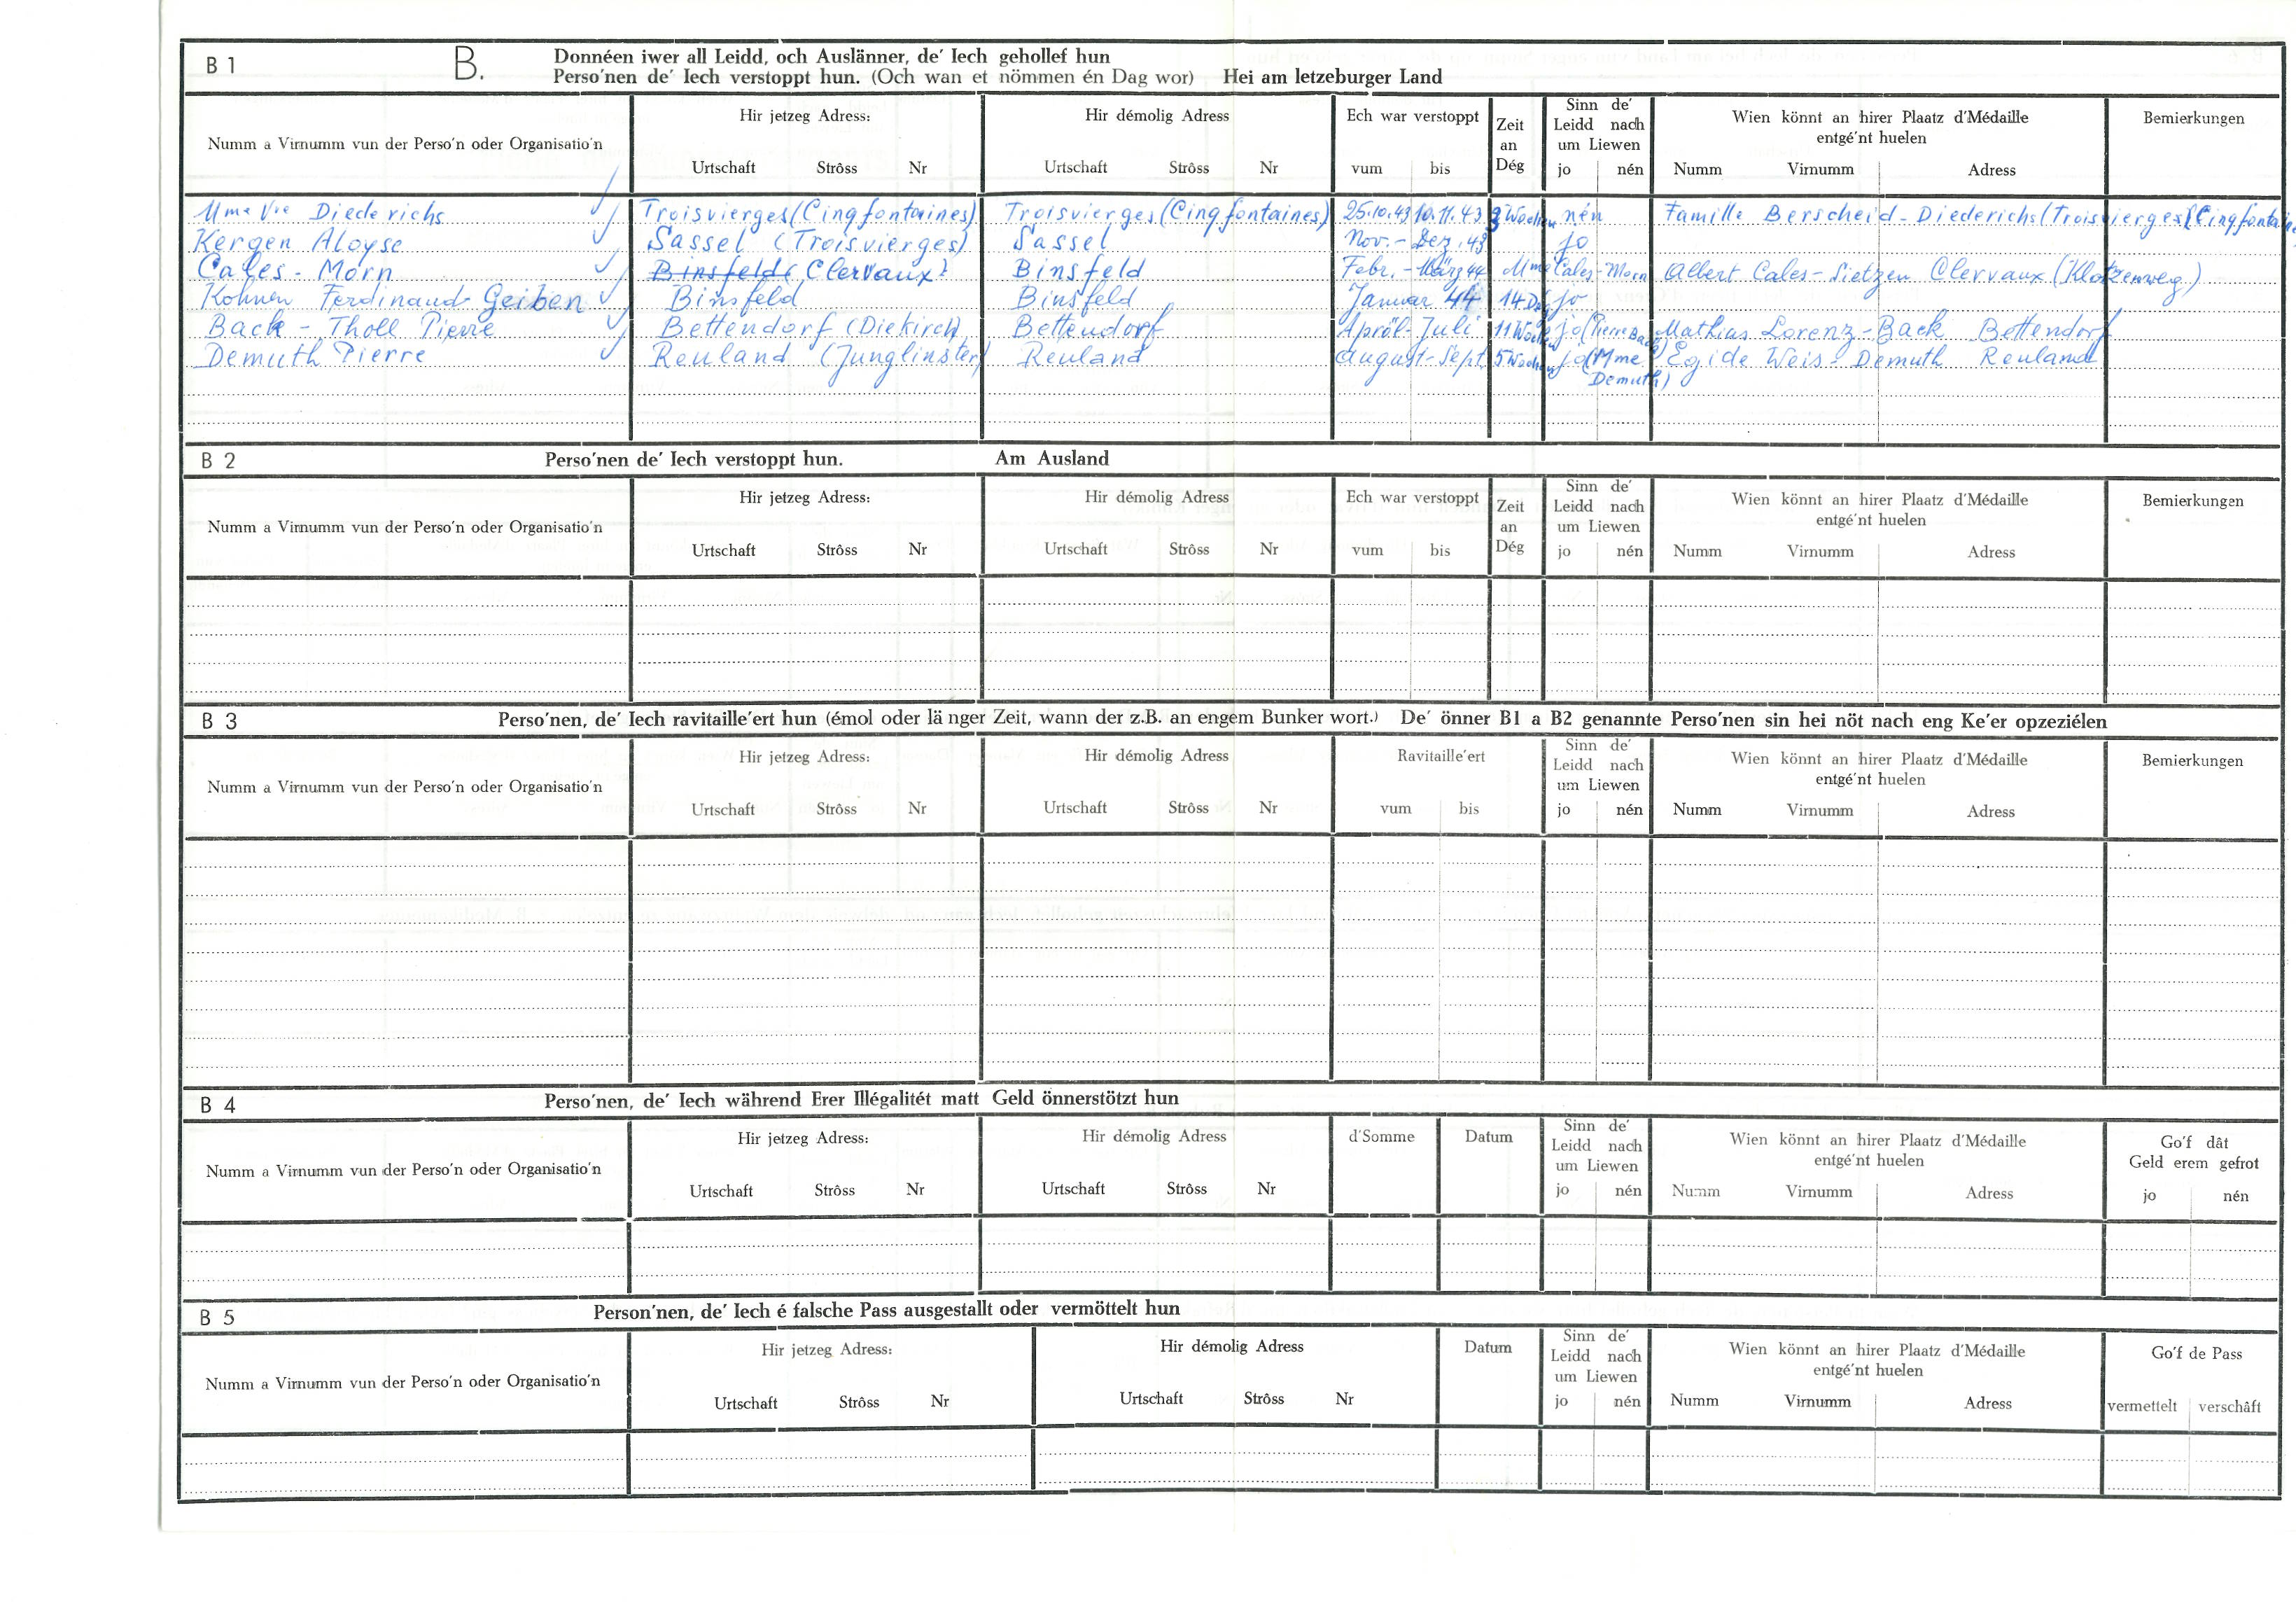 B 1 B. Donnéen iwer all Leidd, och Auslänner, de' Iech gehollef hun
Perso'nen de' Iech verstoppt hun. (Och wan et nömmen én Dag wor) Hei am letzeburger Land
Numm a Virnumm vun der Perso'n oder Organisatio'n
Hir jetzeg Adress:
Urtschaft Strôss Nr
Hir démolig Adress
Urtschaft Strôss Nr
Ech war verstoppt
vum bis
Zeit
an
Dég
Sinn de'
Leidd nach
um Liewen
jo nén
Wien könnt an hirer Plaatz d'Médaille
entgé'nt huelen
Numm Virnumm Adress
Bemierkungen
Mme Vve Diederichs Troisvierges (Cinqfontaines) Troisvierges (Cinqfontaines) 25.10.43 10.11.43 3 Wochen nén Famille Berscheid-Diederichs (Troisvierges (Cinqfontaines
Kergen Aloyse Sassel (Troisvierges) Sassel Nov. - Dez. 43 jo
Cales - Morn Binsfeld( Clervaux? Binsfeld Febr. - März 44 Mme Cales-Morn Albert Cales-Sietzen Clervaux (Klatzenweg)
Kohnen Ferdinand-Geiben Binsfeld Binsfeld Januar 44 14 Deg jo
Back - Tholl Pierre Bettendorf (Diekirch) Bettendorf Apröl-Juli 11 Wochen jo (Pierre Back) Mathias Lorenz-Back Bettendorf
Demuth Pierre Reuland (Junglinster) Reuland August-Sept. 5 Wochen jo (Mme Egide Weis-Demuth Reuland
Demuth)
B 2 Perso'nen de' Iech verstoppt hun. Am Ausland
Numm a Virnumm vun der Perso'n oder Organisatio'n
Hir jetzeg Adress:
Urtschaft Strôss Nr
Hir démolig Adress
Urtschaft Strôss Nr
Ech war verstoppt
vum bis
Zeit
an
Dég
Sinn de'
Leidd nach
um Liewen
jo nén
Wien könnt an hirer Plaatz d'Médaille
entgé'nt huelen
Numm Virnumm Adress
Bemierkungen
B 3 Perso'nen, de' Iech ravitaille'ert hun (émol oder lä nger Zeit, wann der z.B. an engem Bunker wort.) De' önner B1 a B2 genannte Perso'nen sin hei nöt nach eng Ke'er opzeziélen
Numm a Virnumm vun der Perso'n oder Organisatio'n
Hir jetzeg Adress:
Urtschaft Strôss Nr
Hir démolig Adress
Urtschaft Strôss Nr
Ravitaille'ert
vum bis
Sinn de'
Leidd nach
um Liewen
jo nén
Wien könnt an hirer Plaatz d'Médaille
entgé'nt huelen
Numm Virnumm Adress
Bemierkungen
B 4 Perso'nen, de' Iech während Erer Illégalitét matt Geld önnerstötzt hun
Numm a Virnumm vun der Perso'n oder Organisatio'n
Hir jetzeg Adress:
Urtschaft Strôss Nr
Hir démolig Adress
Urtschaft Strôss Nr
d'Somme
Datum
Sinn de'
Leidd nach
um Liewen
jo nén
Wien könnt an hirer Plaatz d'Médaille
entgé'nt huelen
Numm Virnumm Adress
Go'f dât
Geld erem gefrot
jo nén
B 5 Person'nen, de' Iech é falsche Pass ausgestallt oder vermöttelt hun
Numm a Virnumm vun der Perso'n oder Organisatio'n
Hir jetzeg Adress:
Urtschaft Strôss Nr
Hir démolig Adress
Urtschaft Strôss Nr
Datum
Sinn de'
Leidd nach
um Liewen
jo nén
Wien könnt an hirer Plaatz d'Médaille
entgé'nt huelen
Numm Virnumm Adress
Go'f de Pass
vermettelt verschâft